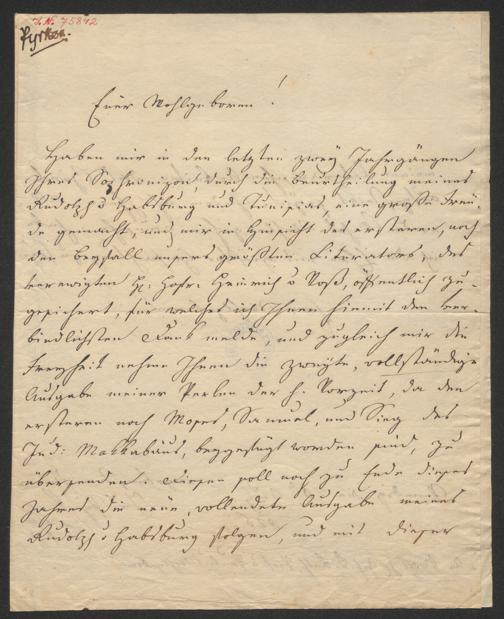 I. N. 75812
Pyrker.
Euer Wohlgeboren!
Haben mir in den letzten zwey Jahrgängen
Ihres Sophronizon durch die Beurtheilung meines
Rudolph v Habsburg und Tunisias, eine große Freu-
de gemacht, und mir in Hinsicht des ersteren, noch
den Beyfall unsers größten Literators, des
verewigten H: Hofr: Heinrich v Voß, öffentlich zu-
gesichert, für welches ich Ihnen hiemit den ver-
bindlichsten Dank melde, und zugleich mir die
Freyheit nehme Ihnen die zweyte, vollständige
Ausgabe meiner Perlen der h. Vorzeit, da den
ersteren noch Moses, Samuel, und Sieg des
Jud: Makkabäus, beygefügt worden sind, zu
übersenden. Diesen soll noch zu Ende dieses
Jahres die neue, vollendete Ausgabe meines
Rudolph v Habsburg folgen, und mit dieser